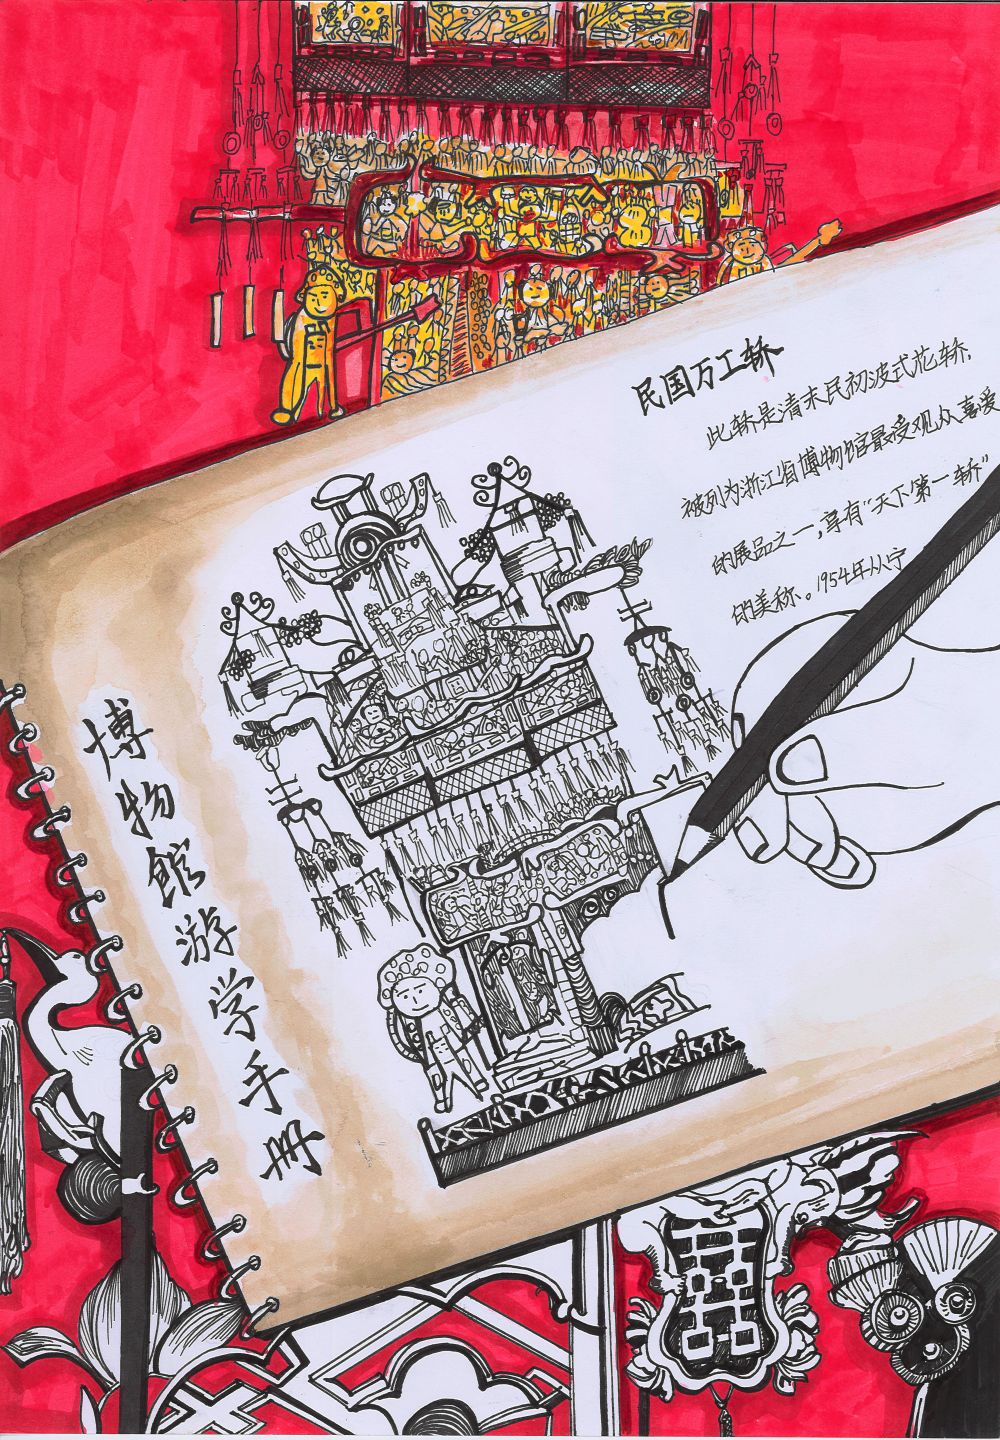 民国万工轿
此轿是清末民初波式花轿，
被列为浙江省博物馆最受观众喜爱
的展品之一，享有“天下第一轿”
的美称。1954年从宁
博物館游学手册
囍